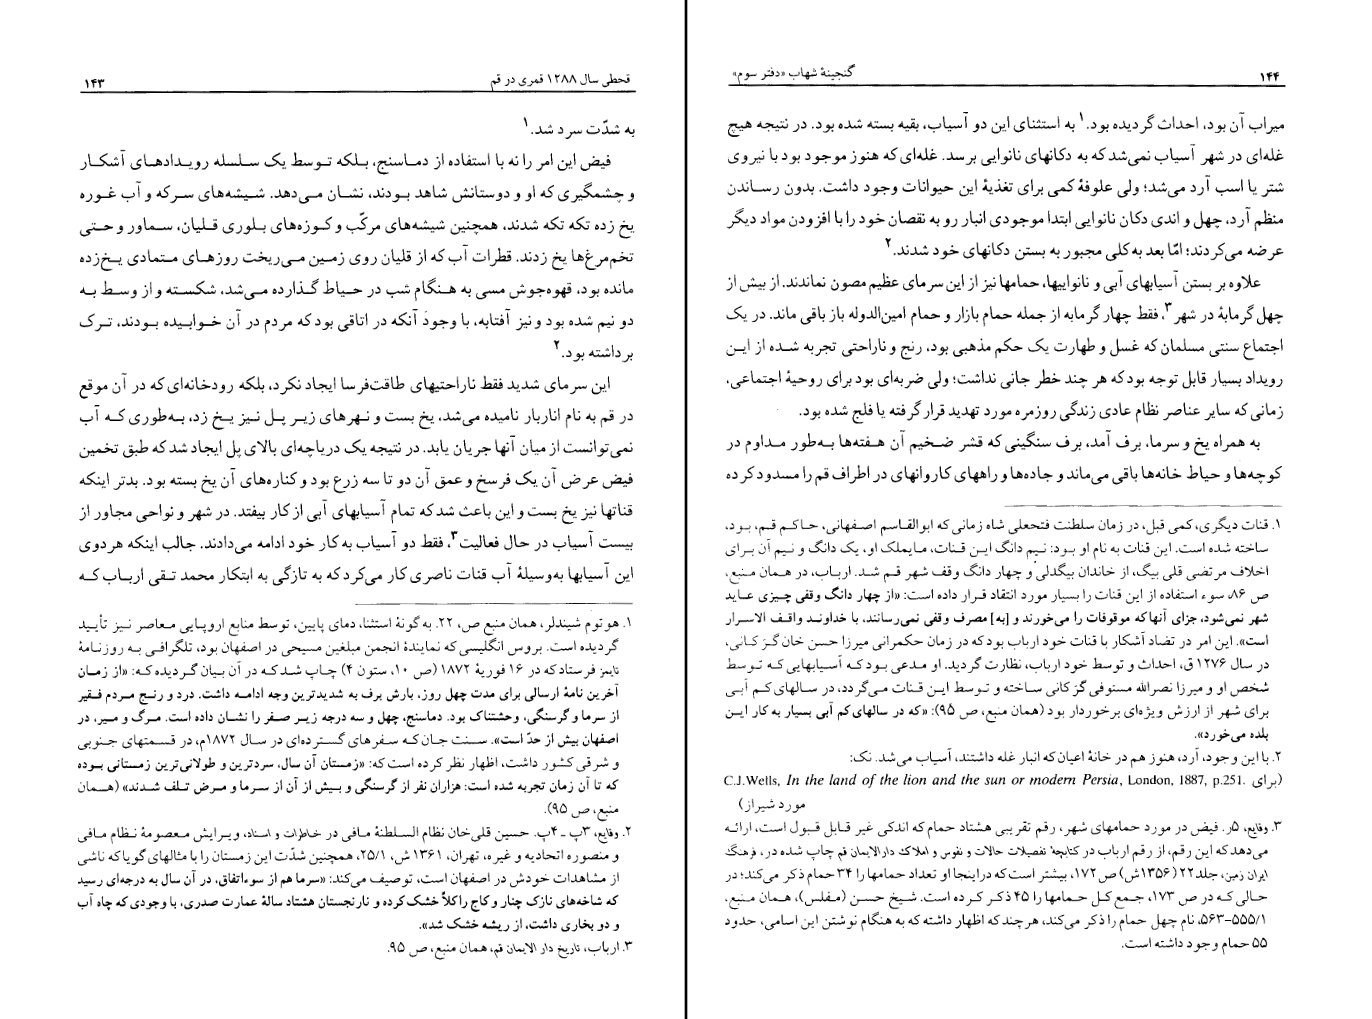 قحطی سال ۱۲۸۸ قمری در قم
۱۴۳
به شدّت سرد شد.۱
فیض این امر را نه با استفاده از دماسنج، بلکه توسط یک سلسله رویدادهای آشکار
و چشمگیری که او و دوستانش شاهد بودند، نشان می‌دهد. شیشه‌های سرکه و آب غوره
یخ زده تکه تکه شدند، همچنین شیشه‌های مرکّب و کوزه‌های بلوری قلیان، سماور و حتی
تخم‌مرغ‌ها یخ زدند. قطرات آب که از قلیان روی زمین می‌ریخت روزهای متمادی یخ‌زده
مانده بود، قهوه‌جوش مسی به هنگام شب در حیاط گذارده می‌شد، شکسته و از وسط به
دو نیم شده بود و نیز آفتابه، با وجود آنکه در اتاقی بود که مردم در آن خوابیده بودند، ترک
برداشته بود.۲
این سرمای شدید فقط ناراحتیهای طاقت‌فرسا ایجاد نکرد، بلکه رودخانه‌ای که در آن موقع
در قم به نام اناربار نامیده می‌شد، یخ بست و نهرهای زیر پل نیز یخ زد، به‌طوری که آب
نمی‌توانست از میان آنها جریان یابد. در نتیجه یک دریاچه‌ای بالای پل ایجاد شد که طبق تخمین
فیض عرض آن یک فرسخ و عمق آن دو تا سه زرع بود و کناره‌های آن یخ بسته بود. بدتر اینکه
قناتها نیز یخ بست و این باعث شد که تمام آسیابهای آبی از کار بیفتد. در شهر و نواحی مجاور از
بیست آسیاب در حال فعالیت۳، فقط دو آسیاب به کار خود ادامه می‌دادند. جالب اینکه هر دوی
این آسیابها به‌وسیلهٔ آب قنات ناصری کار می‌کرد که به تازگی به ابتکار محمد تقی ارباب که
۱. هوتوم شیندلر، همان منبع ص، ۲۲. به‌گونهٔ استثنا، دمای پایین، توسط منابع اروپایی معاصر نیز تأیید
گردیده است. بروس انگلیسی که نمایندهٔ انجمن مبلغین مسیحی در اصفهان بود، تلگرافی به روزنامهٔ
تایمز فرستاد که در ۱۶ فوریهٔ ۱۸۷۲ (ص ۱۰، ستون ۴) چاپ شد که در آن بیان گردیده که: «از زمان
آخرین نامهٔ ارسالی برای مدت چهل روز، بارش برف به شدیدترین وجه ادامه داشت. درد و رنج مردم فقیر
از سرما و گرسنگی، وحشتناک بود. دماسنج، چهل و سه درجه زیر صفر را نشان داده است. مرگ و میر، در
اصفهان بیش از حدّ است». سنت جان که سفرهای گسترده‌ای در سال ۱۸۷۲م، در قسمتهای جنوبی
و شرقی کشور داشت، اظهار نظر کرده است که: «زمستان آن سال، سردترین و طولانی‌ترین زمستانی بوده
که تا آن زمان تجربه شده است: هزاران نفر از گرسنگی و بیش از آن از سرما و مرض تلف شدند» (همان
منبع، ص ۹۵).
۲. وقایع، ۳پ ـ ۴پ. حسین قلی‌خان نظام السلطنهٔ مافی در خاطرات و اسناد، ویرایش معصومهٔ نظام مافی
و منصوره اتحادیه و غیره، تهران، ۱۳۶۱ ش، ۲۵/۱، همچنین شدّت این زمستان را با مثالهای گویا که ناشی
از مشاهدات خودش در اصفهان است، توصیف می‌کند: «سرما هم از سوءاتفاق، در آن سال به درجه‌ای رسید
که شاخه‌های نازک چنار و کاج را کلاً خشک کرده و نارنجستان هشتاد سالهٔ عمارت صدری، با وجودی که چاه آب
و دو بخاری داشت، از ریشه خشک شد».
۳. ارباب، تاریخ دار الایمان قم، همان منبع، ص ۹۵.
گنجینهٔ شهاب «دفتر سوم»
۱۴۴
میراب آن بود، احداث گردیده بود.۱ به استثنای این دو آسیاب، بقیه بسته شده بود. در نتیجه هیچ
غله‌ای در شهر آسیاب نمی‌شد که به دکانهای نانوایی برسد. غله‌ای که هنوز موجود بود با نیروی
شتر یا اسب آرد می‌شد؛ ولی علوفهٔ کمی برای تغذیهٔ این حیوانات وجود داشت. بدون رساندن
منظم آرد، چهل و اندی دکان نانوایی ابتدا موجودی انبار رو به نقصان خود را با افزودن مواد دیگر
عرضه می‌کردند؛ امّا بعد به‌کلی مجبور به بستن دکانهای خود شدند.۲
علاوه بر بستن آسیابهای آبی و نانواییها، حمامها نیز از این سرمای عظیم مصون نماندند. از بیش از
چهل گرمابهٔ در شهر۳، فقط چهار گرمابه از جمله حمام بازار و حمام امین‌الدوله باز باقی ماند. در یک
اجتماع سنتی مسلمان که غسل و طهارت یک حکم مذهبی بود، رنج و ناراحتی تجربه شده از این
رویداد بسیار قابل توجه بود که هر چند خطر جانی نداشت؛ ولی ضربه‌ای بود برای روحیهٔ اجتماعی،
زمانی که سایر عناصر نظام عادی زندگی روزمره مورد تهدید قرار گرفته یا فلج شده بود.
به همراه یخ و سرما، برف آمد، برف سنگینی که قشر ضخیم آن هفته‌ها به‌طور مداوم در
کوچه‌ها و حیاط خانه‌ها باقی می‌ماند و جاده‌ها و راههای کاروانهای در اطراف قم را مسدود کرده
۱. قنات دیگری، کمی قبل، در زمان سلطنت فتحعلی شاه زمانی که ابوالقاسم اصفهانی، حاکم قم، بود،
ساخته شده است. این قنات به نام او بود: نیم دانگ این قنات، مایملک او، یک دانگ و نیم آن برای
اخلاف مرتضی قلی بیگ، از خاندان بیگدلی و چهار دانگ وقف شهر قم شد. ارباب، در همان منبع،
ص ۸۶، سوء استفاده از این قنات را بسیار مورد انتقاد قرار داده است: «از چهار دانگ وقفی چیزی عاید
شهر نمی‌شود، جزای آنها که موقوفات را می‌خورند و [به] مصرف وقفی نمی‌رسانند، با خداوند واقف الاسرار
است». این امر در تضاد آشکار با قنات خود ارباب بود که در زمان حکمرانی میرزا حسن خان گرکانی،
در سال ۱۲۷۶ ق، احداث و توسط خود ارباب، نظارت گردید. او مدعی بود که آسیابهایی که توسط
شخص او و میرزا نصرالله مستوفی گرکانی ساخته و توسط این قنات می‌گردد، در سالهای کم آبی
برای شهر از ارزش ویژه‌ای برخوردار بود (همان منبع، ص ۹۵): «که در سالهای کم آبی بسیار به کار این
بلده می‌خورد».
۲. با این وجود، آرد، هنوز هم در خانهٔ اعیان که انبار غله داشتند، آسیاب می‌شد. نک:
C.J.Wells, In the land of the lion and the sun or modern Persia, London, 1887, p.251. (برای
مورد شیراز)
۳. وقایع، ۵ر. فیض در مورد حمامهای شهر، رقم تقریبی هشتاد حمام که اندکی غیر قابل قبول است، ارائه
می‌دهد که این رقم، از رقم ارباب در کتابچهٔ تفصیلات حالات و نفوس و املاک دارالایمان قم چاپ شده در، فرهنگ
ایران زمین، جلد ۲۲ (۱۳۵۶ش) ص ۱۷۲، بیشتر است که در اینجا او تعداد حمامها را ۳۴ حمام ذکر می‌کند؛ در
حالی که در ص ۱۷۳، جمع کل حمامها را ۴۵ ذکر کرده است. شیخ حسن (مفلس)، همان منبع،
۵۶۳-۵۵۵/۱، نام چهل حمام را ذکر می‌کند، هر چند که اظهار داشته که به هنگام نوشتن این اسامی، حدود
۵۵ حمام وجود داشته است.